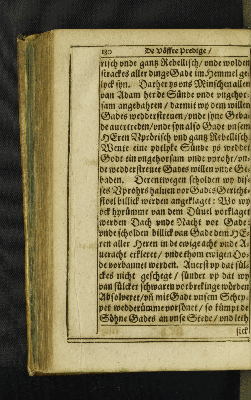 130 De Vöffte Predige /
risch vnde gantz Rebellisch / vnde wolden
strackes aller dinge Gade im Hemmel ge-
lyck syn. Darher ys ons Minschen allen
van Adam her de Sünde vnde vngehor-
sam angebahren / darmit wy dem willen
Gades wedderstreuen / vnde syne Geba-
de auertreden / vnde syn also Gade vnsem
HEren Vprörisch vnd gantz Rebellisch.
Wente eine ydtlyke Sünde ys wedder
Godt ein vngehorsam vnde vprohr / vn-
de wedderstreuet Gades willen vnde Ge-
baden. Derentwegen scholden wy dis-
ses Vprohrs haluen vor Gades Gerichte-
stoel billick werden angeklaget: Wo wy
ock hyrümme van dem Düuel vorklaget
werden Dach vnde Nacht vor Gade:
vnde scholden billick van Gade dem HE-
ren aller Heren in de ewige acht vnde A-
ueracht erkleret / vnde thom ewigen Do-
de vorbannet werden. Auerst vp dat sül-
ckes nicht geschege / sünder vp dat wy
van sülcker schwaren vorbrekinge würden
Absolueret / vñ mit Gade vnsem Schep-
per wedderümme vorsönet / so kümpt de
Söhne Gades an vnse Stede / vnd leth
sick